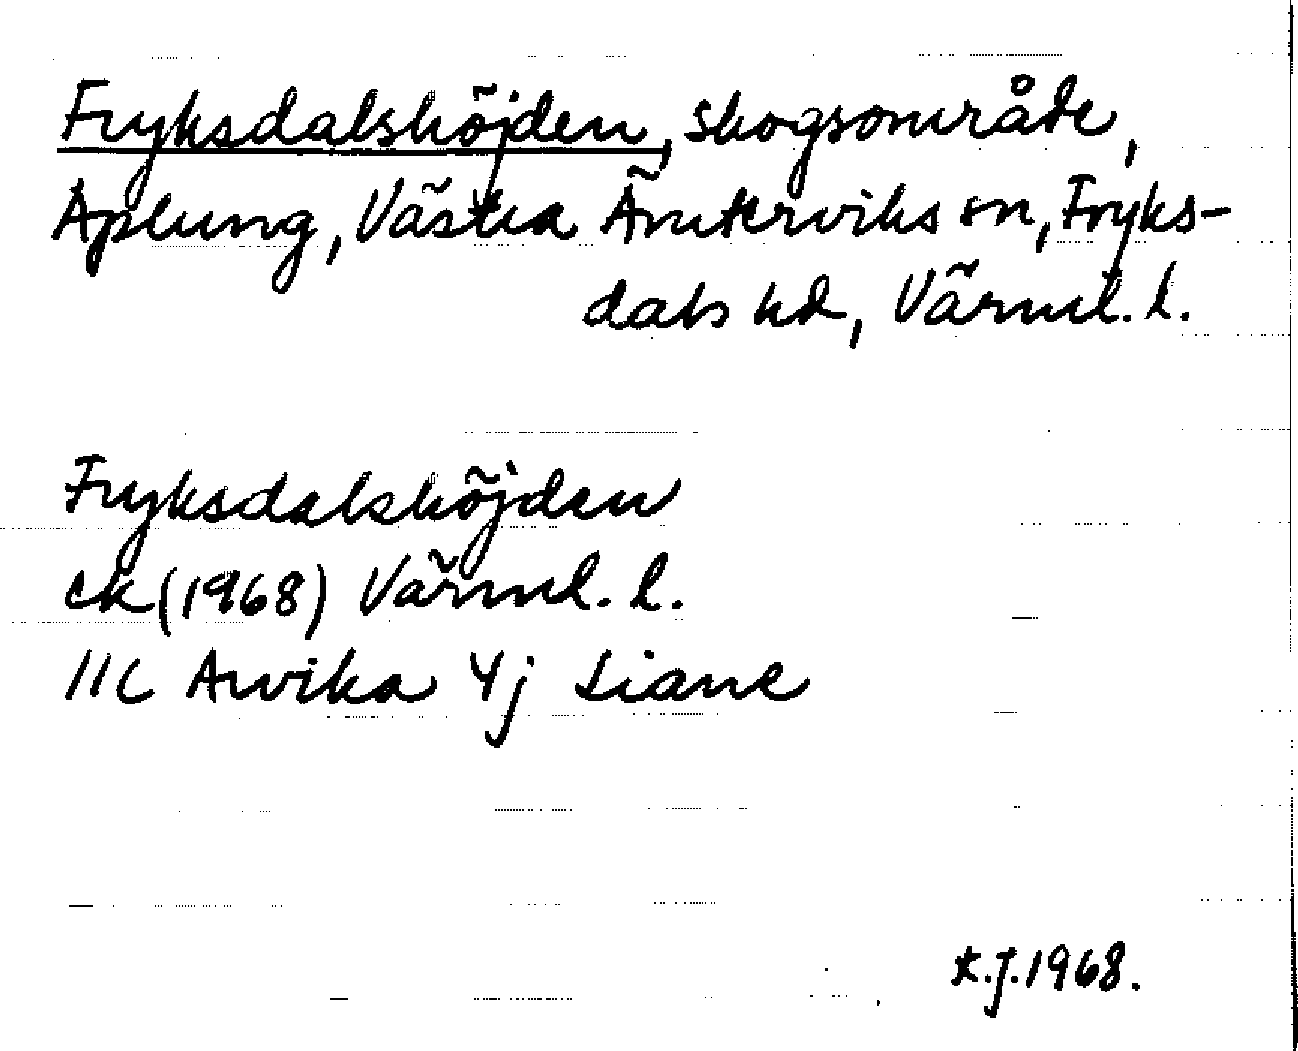 Fryksdalshöjden, skogsområde,
Aplung, Västra Ämterviks sn, Fryks-
dals hd, Värml. l.
Fryksdalshöjden
ek (1968) Värml. l.
11C Arvika 4j Liane
K.J. 1968.